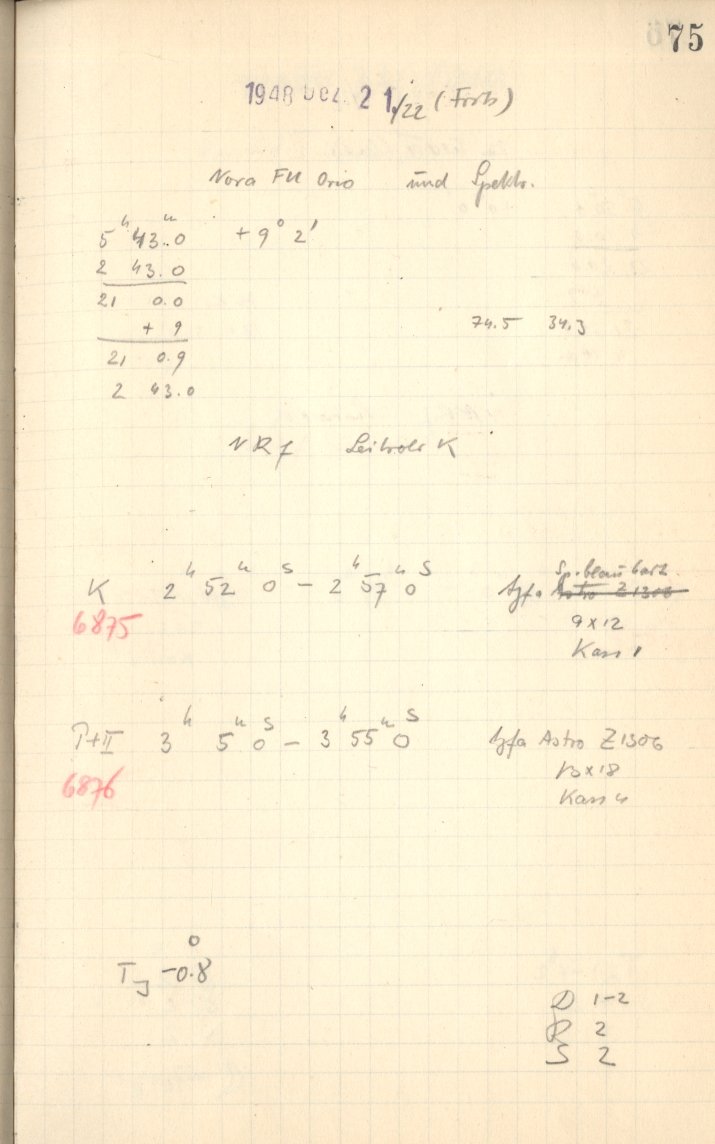 75
1948 Dez. 21./22 (Forts)
Nova FU Orio und Spektr.
5ʰ 43ᵐ.0 + 9° 2'
2 43.0
21 0.0
+ 9
74.5 34.3
21 0.9
2 43.0
K
Sp. blau hart
K 2ʰ 52ᵐ 0ˢ – 2ʰ 57ᵐ 0ˢ Agfa Astro Z1306
6875
9x12
Kass 1
P+II 3ʰ 5ᵐ 0ˢ – 3ʰ 55ᵐ 0ˢ Agfa Astro Z1306
6876
13x18
Kass 4
T_J -0°.8
D 1-2
R 2
S 2